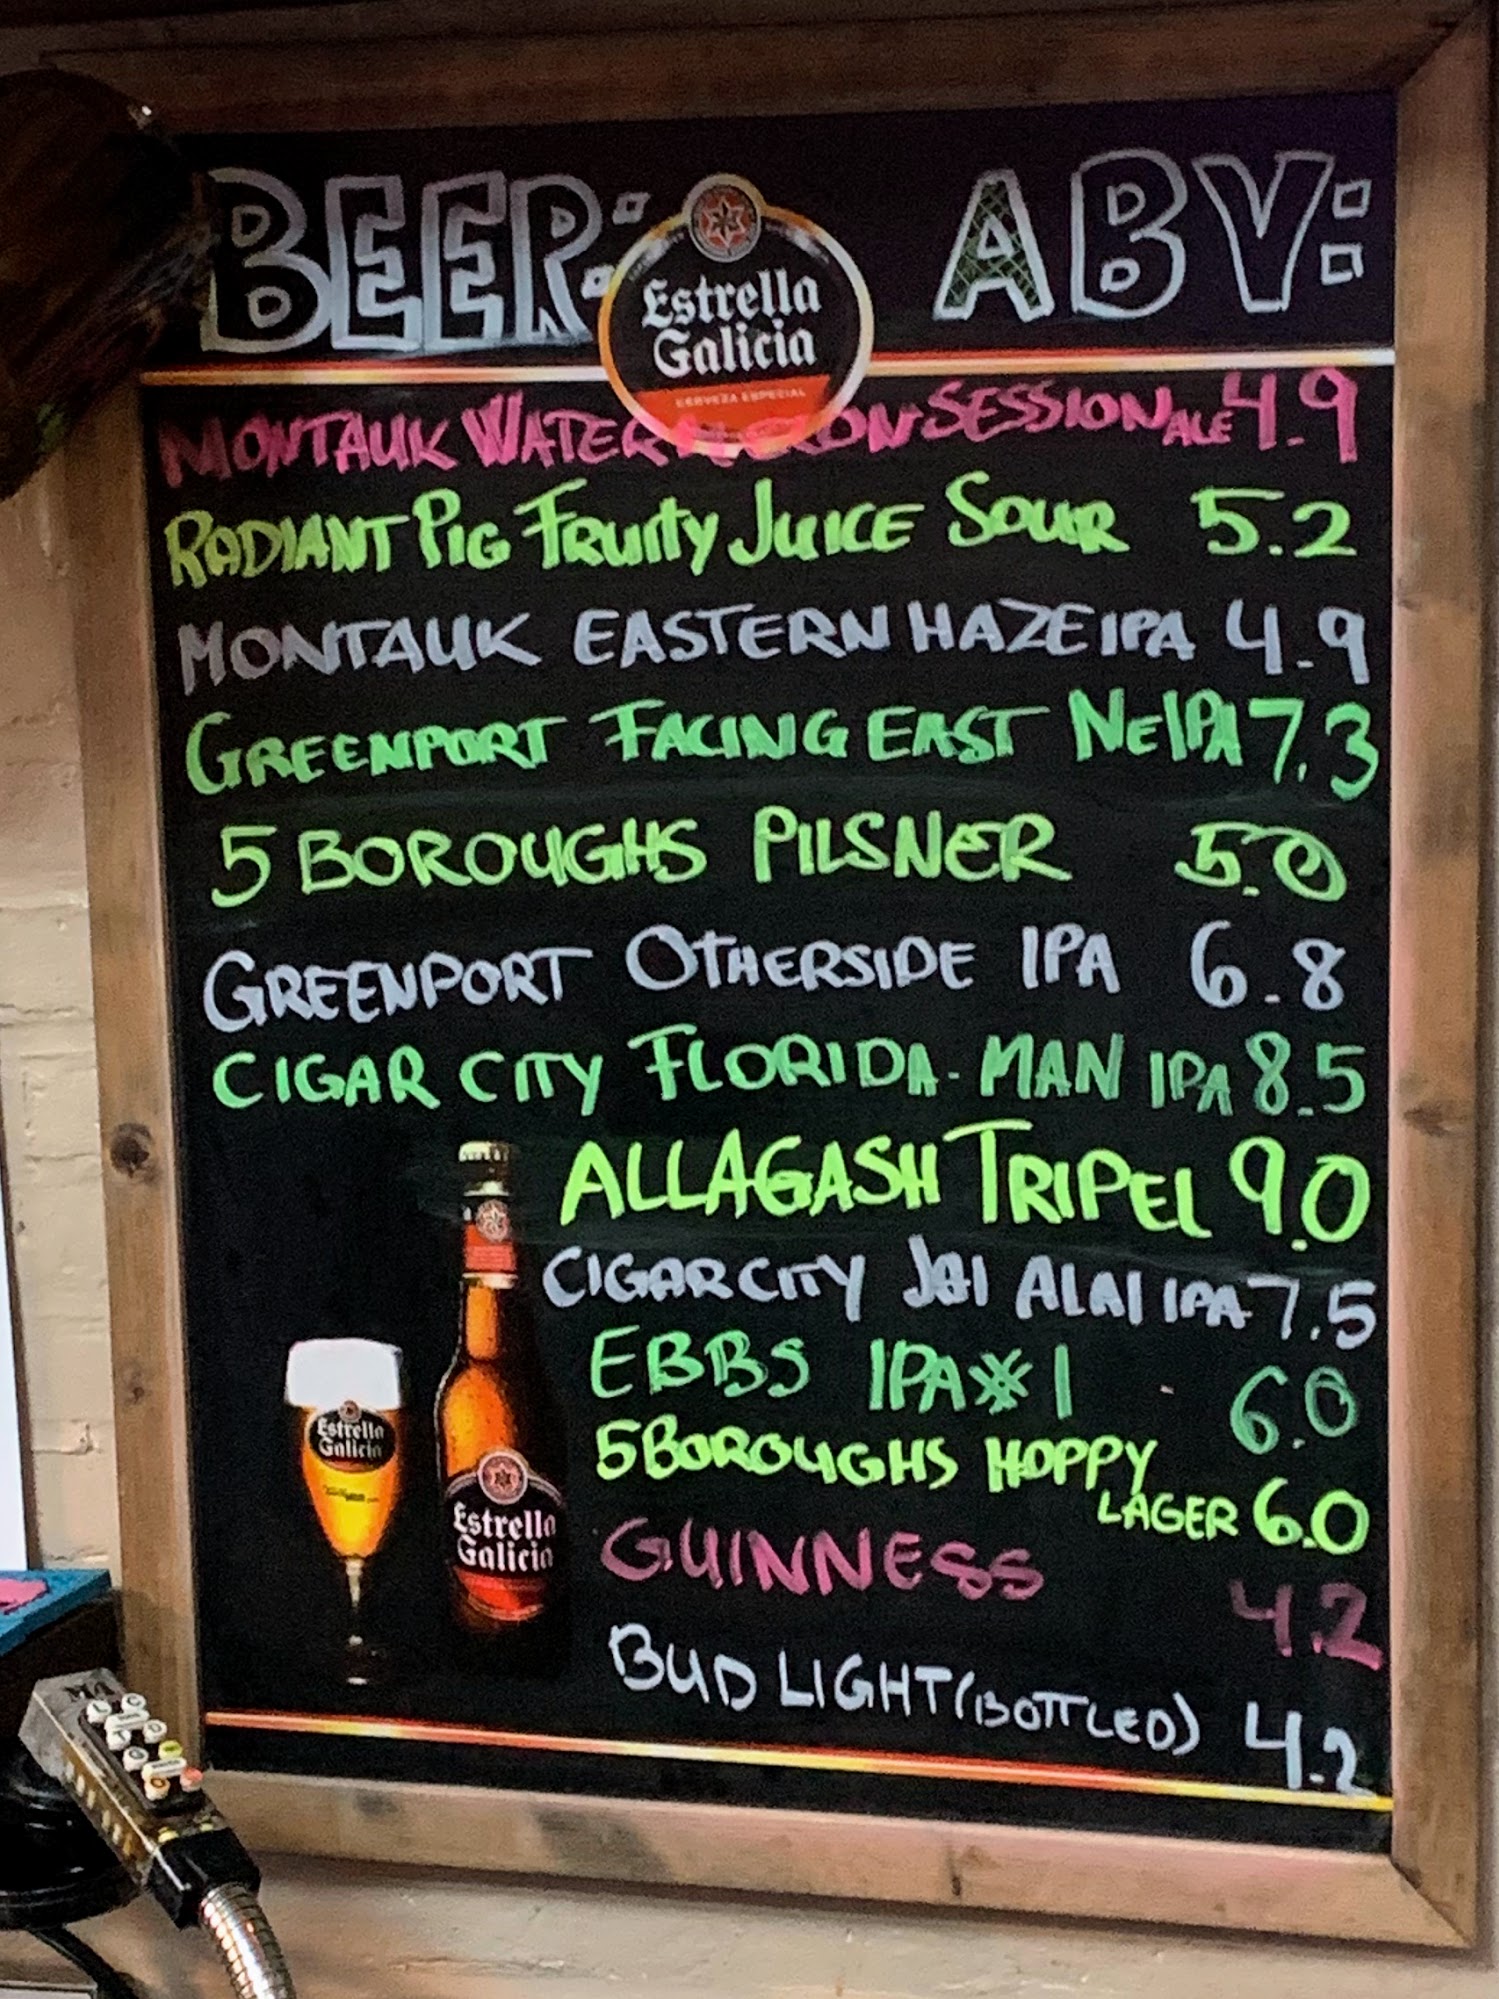 BEER: ABV:
Estrella
Galicia
CERVEZA ESPECIAL
MONTAUK WATERMELON SESSION ALE 4.9
RADIANT PIG FRUITY JUICE SOUR 5.2
MONTAUK EASTERN HAZE IPA 4.9
GREENPORT FACING EAST NEIPA 7.3
5 BOROUGHS PILSNER 5.0
GREENPORT OTHERSIDE IPA 6.8
CIGAR CITY FLORIDA-MAN IPA 8.5
ALLAGASH TRIPEL 9.0
CIGAR CITY JAI ALAI IPA 7.5
EBBS IPA #1 6.0
5 BOROUGHS HOPPY
LAGER 6.0
GUINNESS 4.2
BUD LIGHT (BOTTLED) 4.2
Estrella
Galicia
Estrella
Galicia